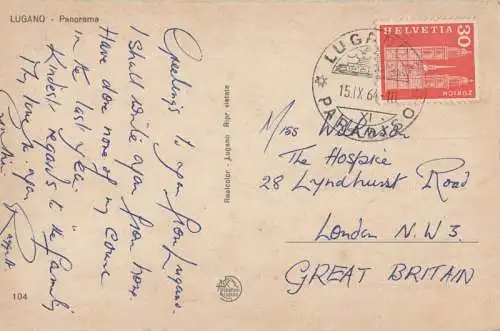 LUGANO - Panorama
Greetings to you from Lugano.
I shall write again from home
Have done none of my course
in the last year.
Kindest regards to the family
104
Realcolor - Lugano Ripr. vietata
LUGANO
15.IX.64
PARADISO
HELVETIA
30
ZÜRICH
Miss
The Hospice
28 Lyndhurst Road
London N.W.3.
GREAT BRITAIN